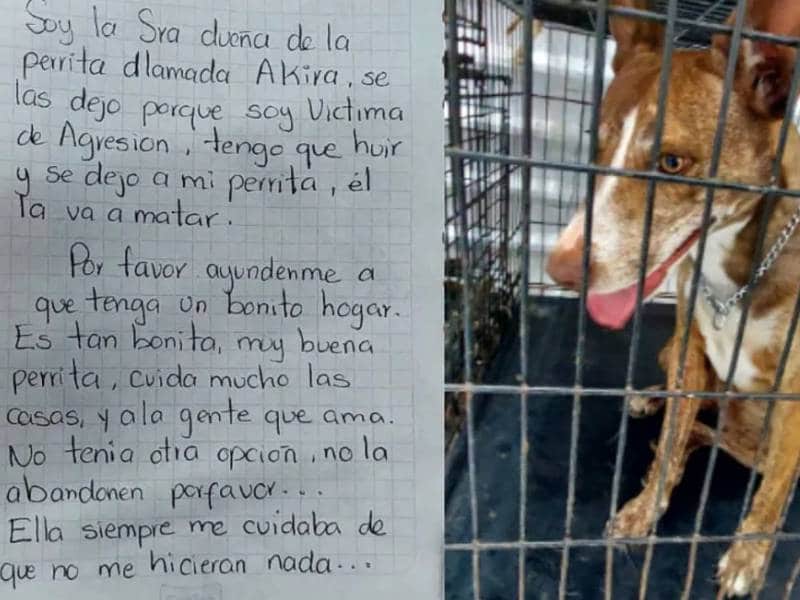 Soy la Sra dueña de la
perrita dlamada Akira, se
las dejo porque soy Victima
de Agresion, tengo que huir
y se dejo a mi perrita, él
la va a matar.
Por favor ayundenme a
que tenga un bonito hogar.
Es tan bonita, muy buena
perrita, cuida mucho las
casas, y ala gente que ama.
No tenia otra opción, no la
abandonen porfavor...
Ella siempre me cuidaba de
que no me hicieran nada...